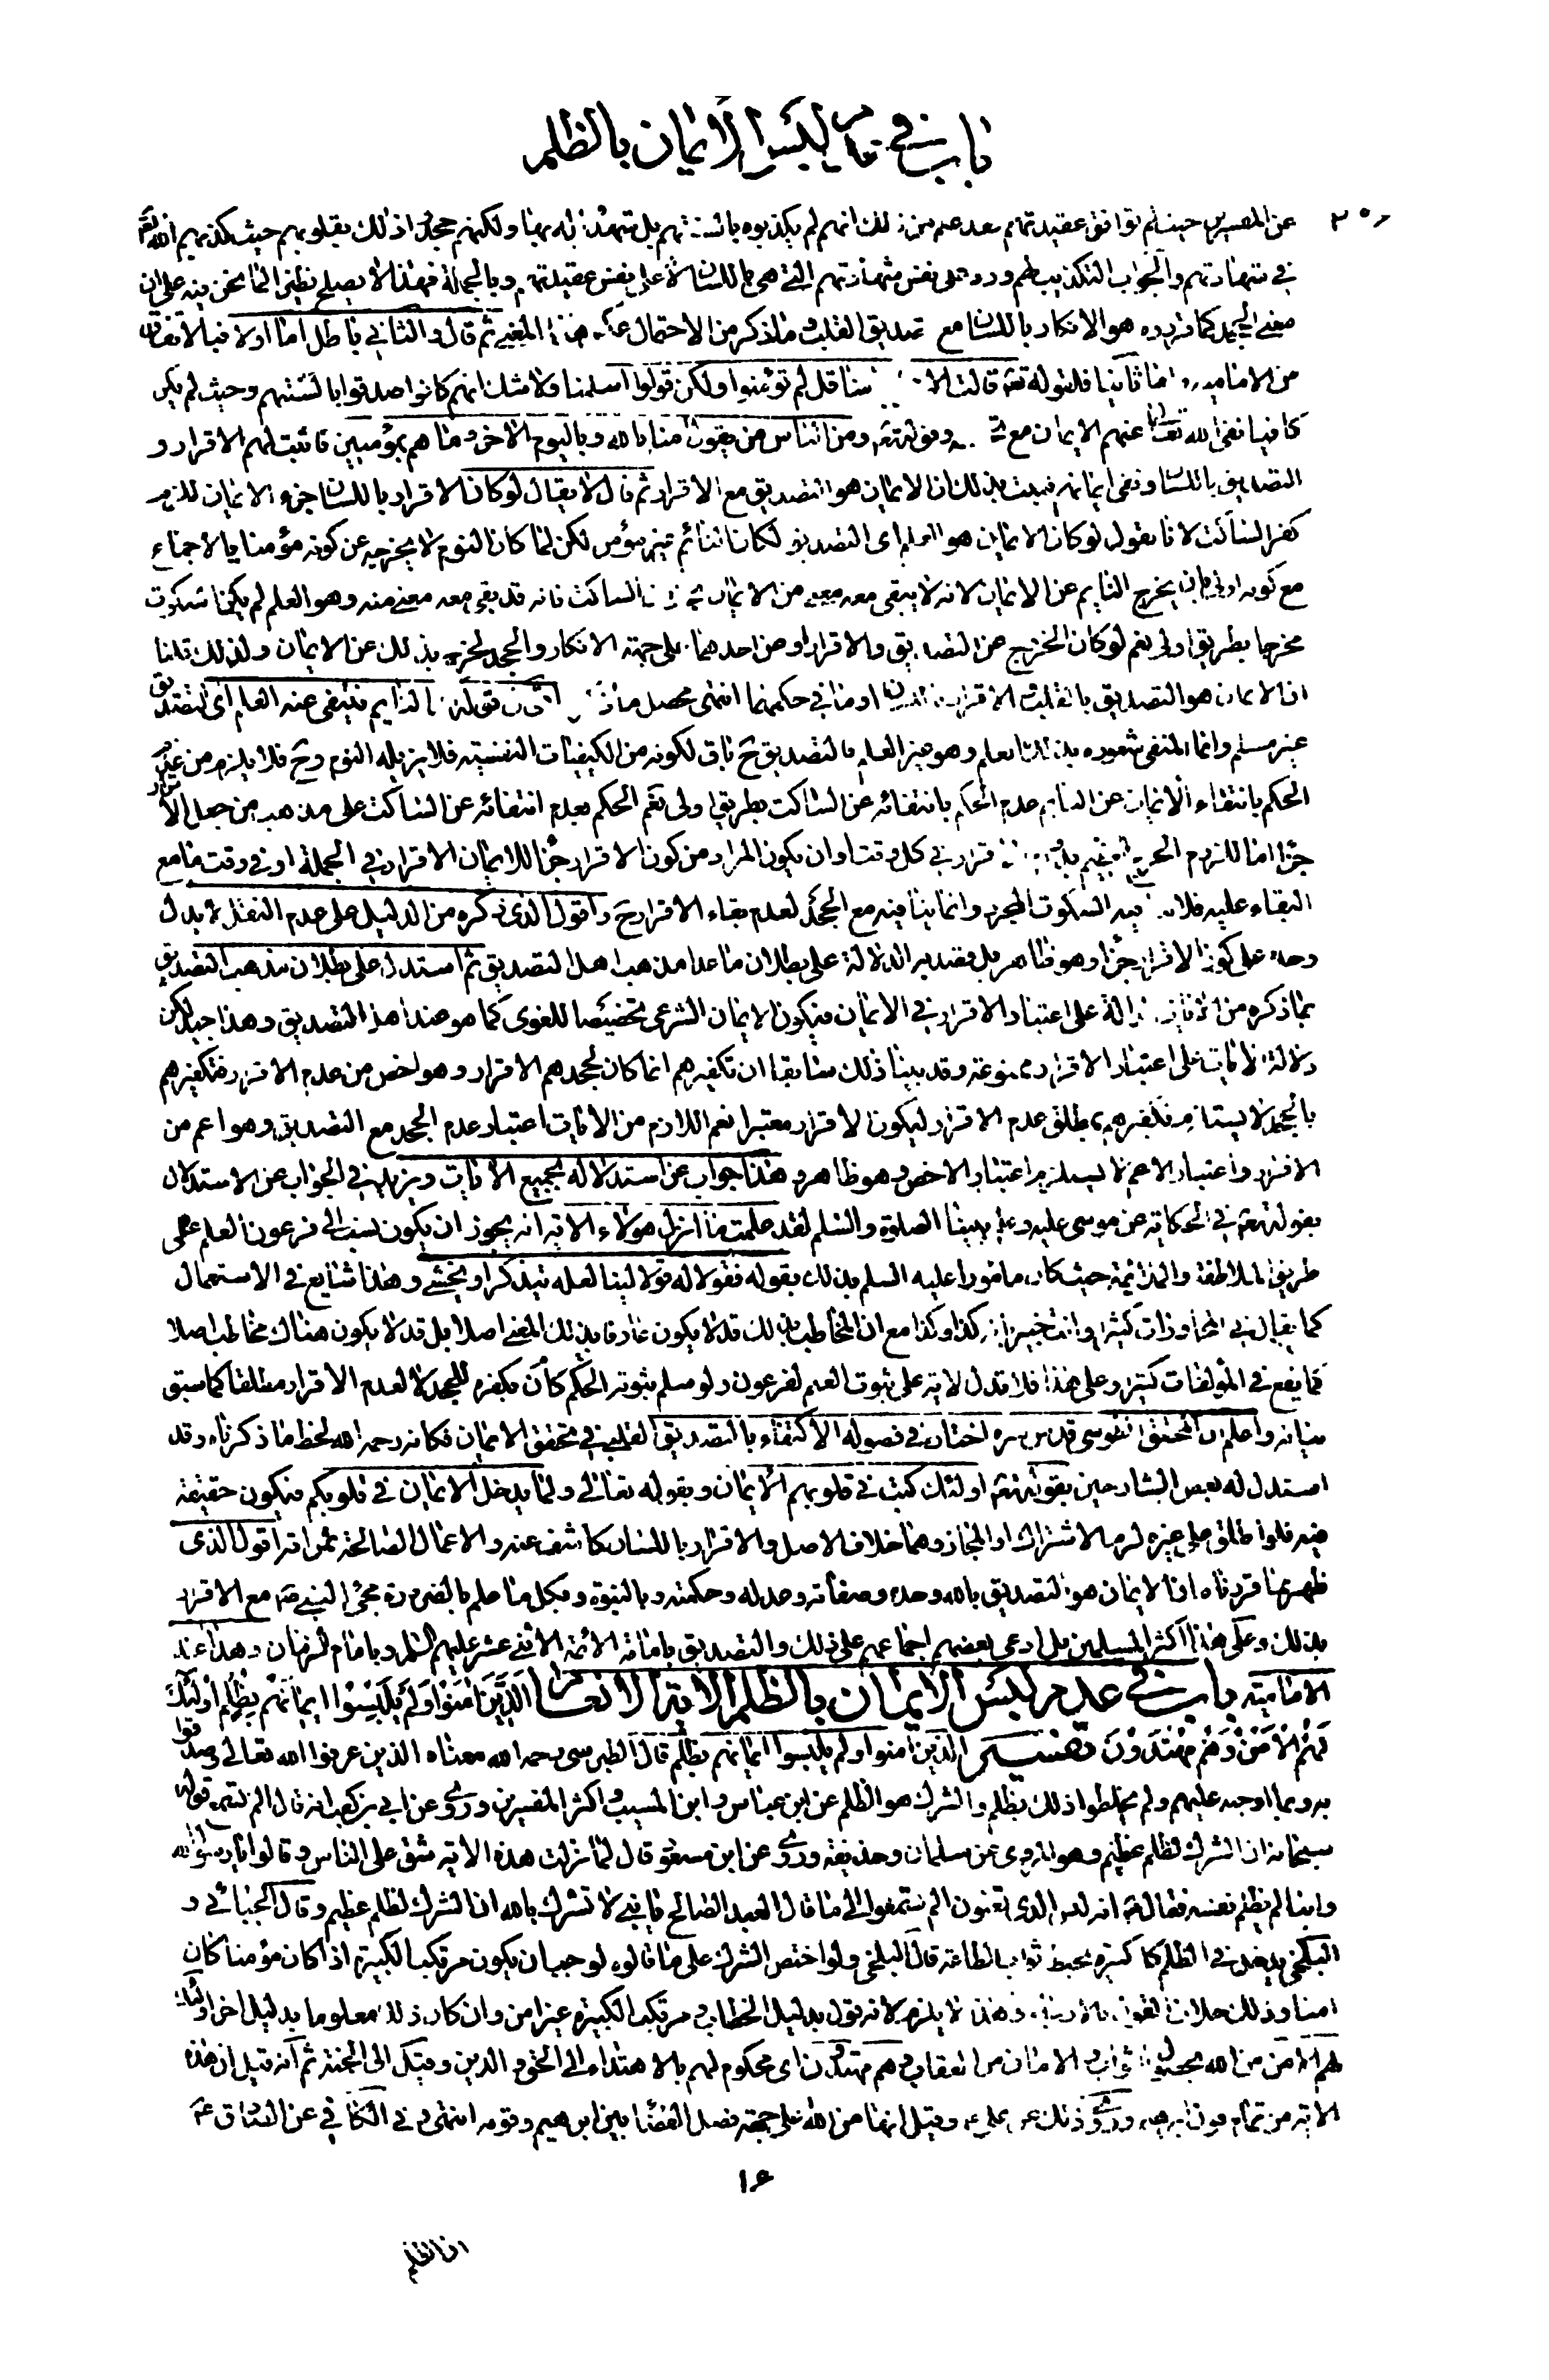 باب في عدم لبس الايمان بالظلم
عن المفسرين حيث لم توافق عقيدتهم فعلم من ذلك انهم لم يكذبوه بالسنتهم بل شهدوا له بها ولكنهم جحدوا ذلك بقلوبهم حيث كذبهم الله تعالى
في شهادتهم والجواب التكذيب لهم ورد على نفس شهادتهم التي هي باللسان لا على نفس عقيدتهم وبالجملة فهذا لا يصلح نظيرا لما نحن فيه على ان
معنى الجحد كما قرروه هو الانكار باللسان مع تصديق القلب وما ذكر من الاحتمال عكس هذا المعنى ثم قال والثاني باطل اما اولا فبالاتفاق
من الامامية واما ثانيا فلقوله تعالى قالت الا منا قل لم تؤمنوا ولكن قولوا اسلمنا ولا شك انهم كانوا صدقوا بالسنتهم وحيث لم يكن
كافيا نفى الله تعالى عنهم الايمان مع وقوله تعالى ومن الناس من يقول امنا بالله وباليوم الاخر وما هم بمؤمنين فاثبت لهم الاقرار و
التصديق باللسان ونفى ايمانهم فثبت بذلك ان الايمان هو التصديق مع الاقرار ثم قال لا يقال لو كان الاقرار باللسان جزء الايمان للزم
كفر الساكت لانا نقول لو كان الايمان هو العلم اى التصديق لكان النائم غير مؤمن لكن لما كان النوم لا يخرجه عن كونه مؤمنا بالاجماع
مع كونه اولى بان يخرج النايم عن الايمان لانه لا يبقى معه معنى من الايمان الساكت فانه قد بقى معه معنى منه وهو العلم لم يكن السكوت
مخرجا بطريق اولى نعم لو كان الخروج عن التصديق والاقرار او عن احدهما على جهة الانكار والجحد لخرج بذلك عن الايمان ولذلك قلنا
ان الايمان هو التصديق بالقلب والاقرار باللسان او ما في حكمهما انتهى محصل ما ذكره اقول قوله ان النايم ينتفى عنه العلم اى التصديق
غير مسلم وانما المنتفى شعوره بذلك العلم وهو غير العلم فالتصديق ح باق لكونه من الكيفيات النفسية فلا يزيله النوم وح فلا يلزم من عدم
الحكم بانتفاء الايمان عن النايم عدم الحكم بانتفائه عن الساكت بطريق اولى نعم الحكم بعدم انتفائه عن الساكت على مذهب من جعل الاقرار
جزءا اما للزوم الحرج العظيم بدوام الاقرار في كل وقت او ان يكون المراد من كون الاقرار جزءا للايمان الاقرار في الجملة او في وقت ما مع
البقاء عليه فلا ينافيه السكوت المجرد وانما ينافيه مع الجحد لعدم بقاء الاقرار ح واقول الذى ذكره من الدليل على عدم النقل لا يدل
وحده على كون الاقرار جزءا وهو ظاهر بل بقصد به الدلالة على بطلان ما عدا مذهب اهل التصديق ثم استدل على بطلان مذهب التصديق
بما ذكره من الايات الدالة على اعتبار الاقرار في الايمان فيكون الايمان الشرعي تخصيصا للغوى كما هو عند اهل التصديق وهذا جيد لكن
دلالة الايات على اعتبار الاقرار ممنوعة وقد بينا ذلك سابقا ان تكفيرهم انما كان لجحدهم الاقرار وهو اخص من عدم الاقرار فتكفيرهم
بالجحد لا يستلزم تكفيرهم بمطلق عدم الاقرار ليكون الاقرار معتبرا نعم اللازم من الايات اعتبار عدم الجحد مع التصديق وهو اعم من
الاقرار واعتبار الاعم لا يستلزم اعتبار الاخص وهو ظاهر وهذا جواب عن استدلاله بجميع الايات ويزيد في الجواب عن الاستدلال
بقوله تعالى في الحكاية عن موسى عليه وعلى نبينا الصلوة والسلم لقد علمت ما انزل هؤلاء الاية انه يجوز ان يكون نسب الى فرعون العلم على
طريق الملاطفة والملائمة حيث كان مامورا عليه السلم بذلك بقوله فقولا له قولا لينا لعله يتذكر او يخشى وهذا شايع في الاستعمال
كما يقال في المحاورات كثيرا وانت خبير بانه كذا وكذا مع ان المخاطب بذلك قد لا يكون عارفا بذلك المعنى اصلا بل قد لا يكون هناك مخاطب اصلا
كما يقع في المؤلفات كثيرا وعلى هذا فلا تدل الاية على ثبوت العلم لفرعون ولو سلم ثبوته الحكم كان بكفره للجحد لا لعدم الاقرار مطلقا كما سبق
بيانه واعلم ان المحقق الطوسي قدس سره اختار في فصوله الاكتفاء بالتصديق القلبي في تحقق الايمان فكانه رحمه الله لحظ ما ذكرناه وقد
استدل له بعض الشارحين بقوله تعالى اولئك كتب في قلوبهم الايمان وبقوله تعالى ولما يدخل الايمان في قلوبكم فيكون حقيقة
فيه فلو اطلق على غيره لزم الاشتراك او المجاز وهما خلاف الاصل والاقرار باللسان كاشف عنه والاعمال الصالحة ثمراته اقول الذى
ظهر مما قررناه ان الايمان هو التصديق بالله وحده وصفاته وعدله وحكمته وبالنبوة وبكل ما علم بالضرورة مجئ النبي ص به مع الاقرار
بذلك وعلى هذا اكثر المسلمين بل ادعى بعضهم اجماعهم على ذلك والتصديق بامامة الائمة الاثني عشر عليهم السلم وبامام الزمان وهذا عند
الامامية باب في عدم لبس الايمان بالظلم الاية الانعام الَّذِينَ اٰمَنُوا وَلَمْ يَلْبِسُوا اِيمَانَهُمْ بِظُلْمٍ اُولٰئِكَ
لَهُمُ الْاَمْنُ وَهُمْ مُهْتَدُونَ تفسير الذين امنوا ولم يلبسوا ايمانهم بظلم قال الطبرسي رحمه الله معناه الذين عرفوا الله تعالى وصدقوا
به وبما اوجبه عليهم ولم يخلطوا ذلك بظلم والشرك هو الظلم عن ابن عباس وابن المسيب واكثر المفسرين وروى عن ابي بن كعب انه قال الم تسمع قوله
سبحانه ان الشرك لظلم عظيم وهو المروى عن سلمان وحذيفة وروى عن ابن مسعود قال لما نزلت هذه الاية شق على الناس وقالوا يا رسول الله
واينا لم يظلم نفسه فقال ص انه ليس الذى تعنون الم تسمعوا الى ما قال العبد الصالح يا بني لا تشرك بالله ان الشرك لظلم عظيم وقال الجبائي و
البلخي يدخل في الظلم كل كبيرة تحبط ثواب الطاعة قال البلخي ولو اختص الشرك على ما قالوه لوجب ان يكون مرتكب الكبيرة اذا كان مؤمنا كان
امنا وذلك خلاف القول بالارجاء وهذا لا يلزم لانه قول بدليل الخطاب ومرتكب الكبيرة غير امن وان كان ذلك معلوما بدليل اخر اولئك
لهم الامن من الله بحصول الثواب والامان من العقاب وهم مهتدون اى محكوم لهم بالاهتداء الى الحق والدين وقيل الى الجنة ثم انه قيل ان هذه
الاية من تمام قول ابرهيم وروى ذلك عن على ع وقيل انها من الله على جهة فصل القضا بين ابرهيم وقومه انتهى و في الكافي عن الصادق ع
١٤
ان الظلم